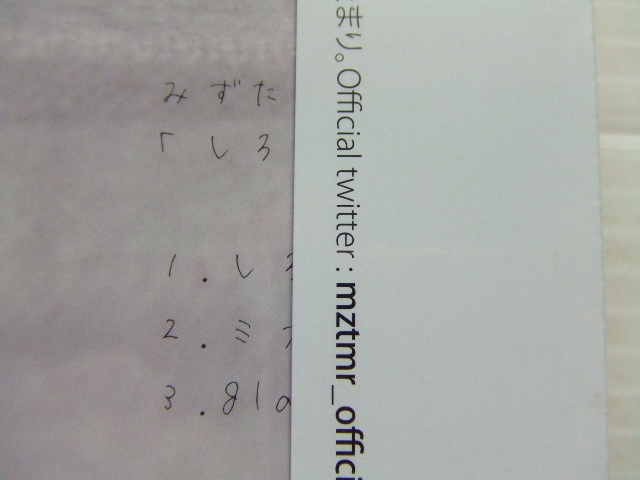 みずた
「しろ
1. しろ
2. ミナ
3. glo
まり。Official twitter : mztmr_offici